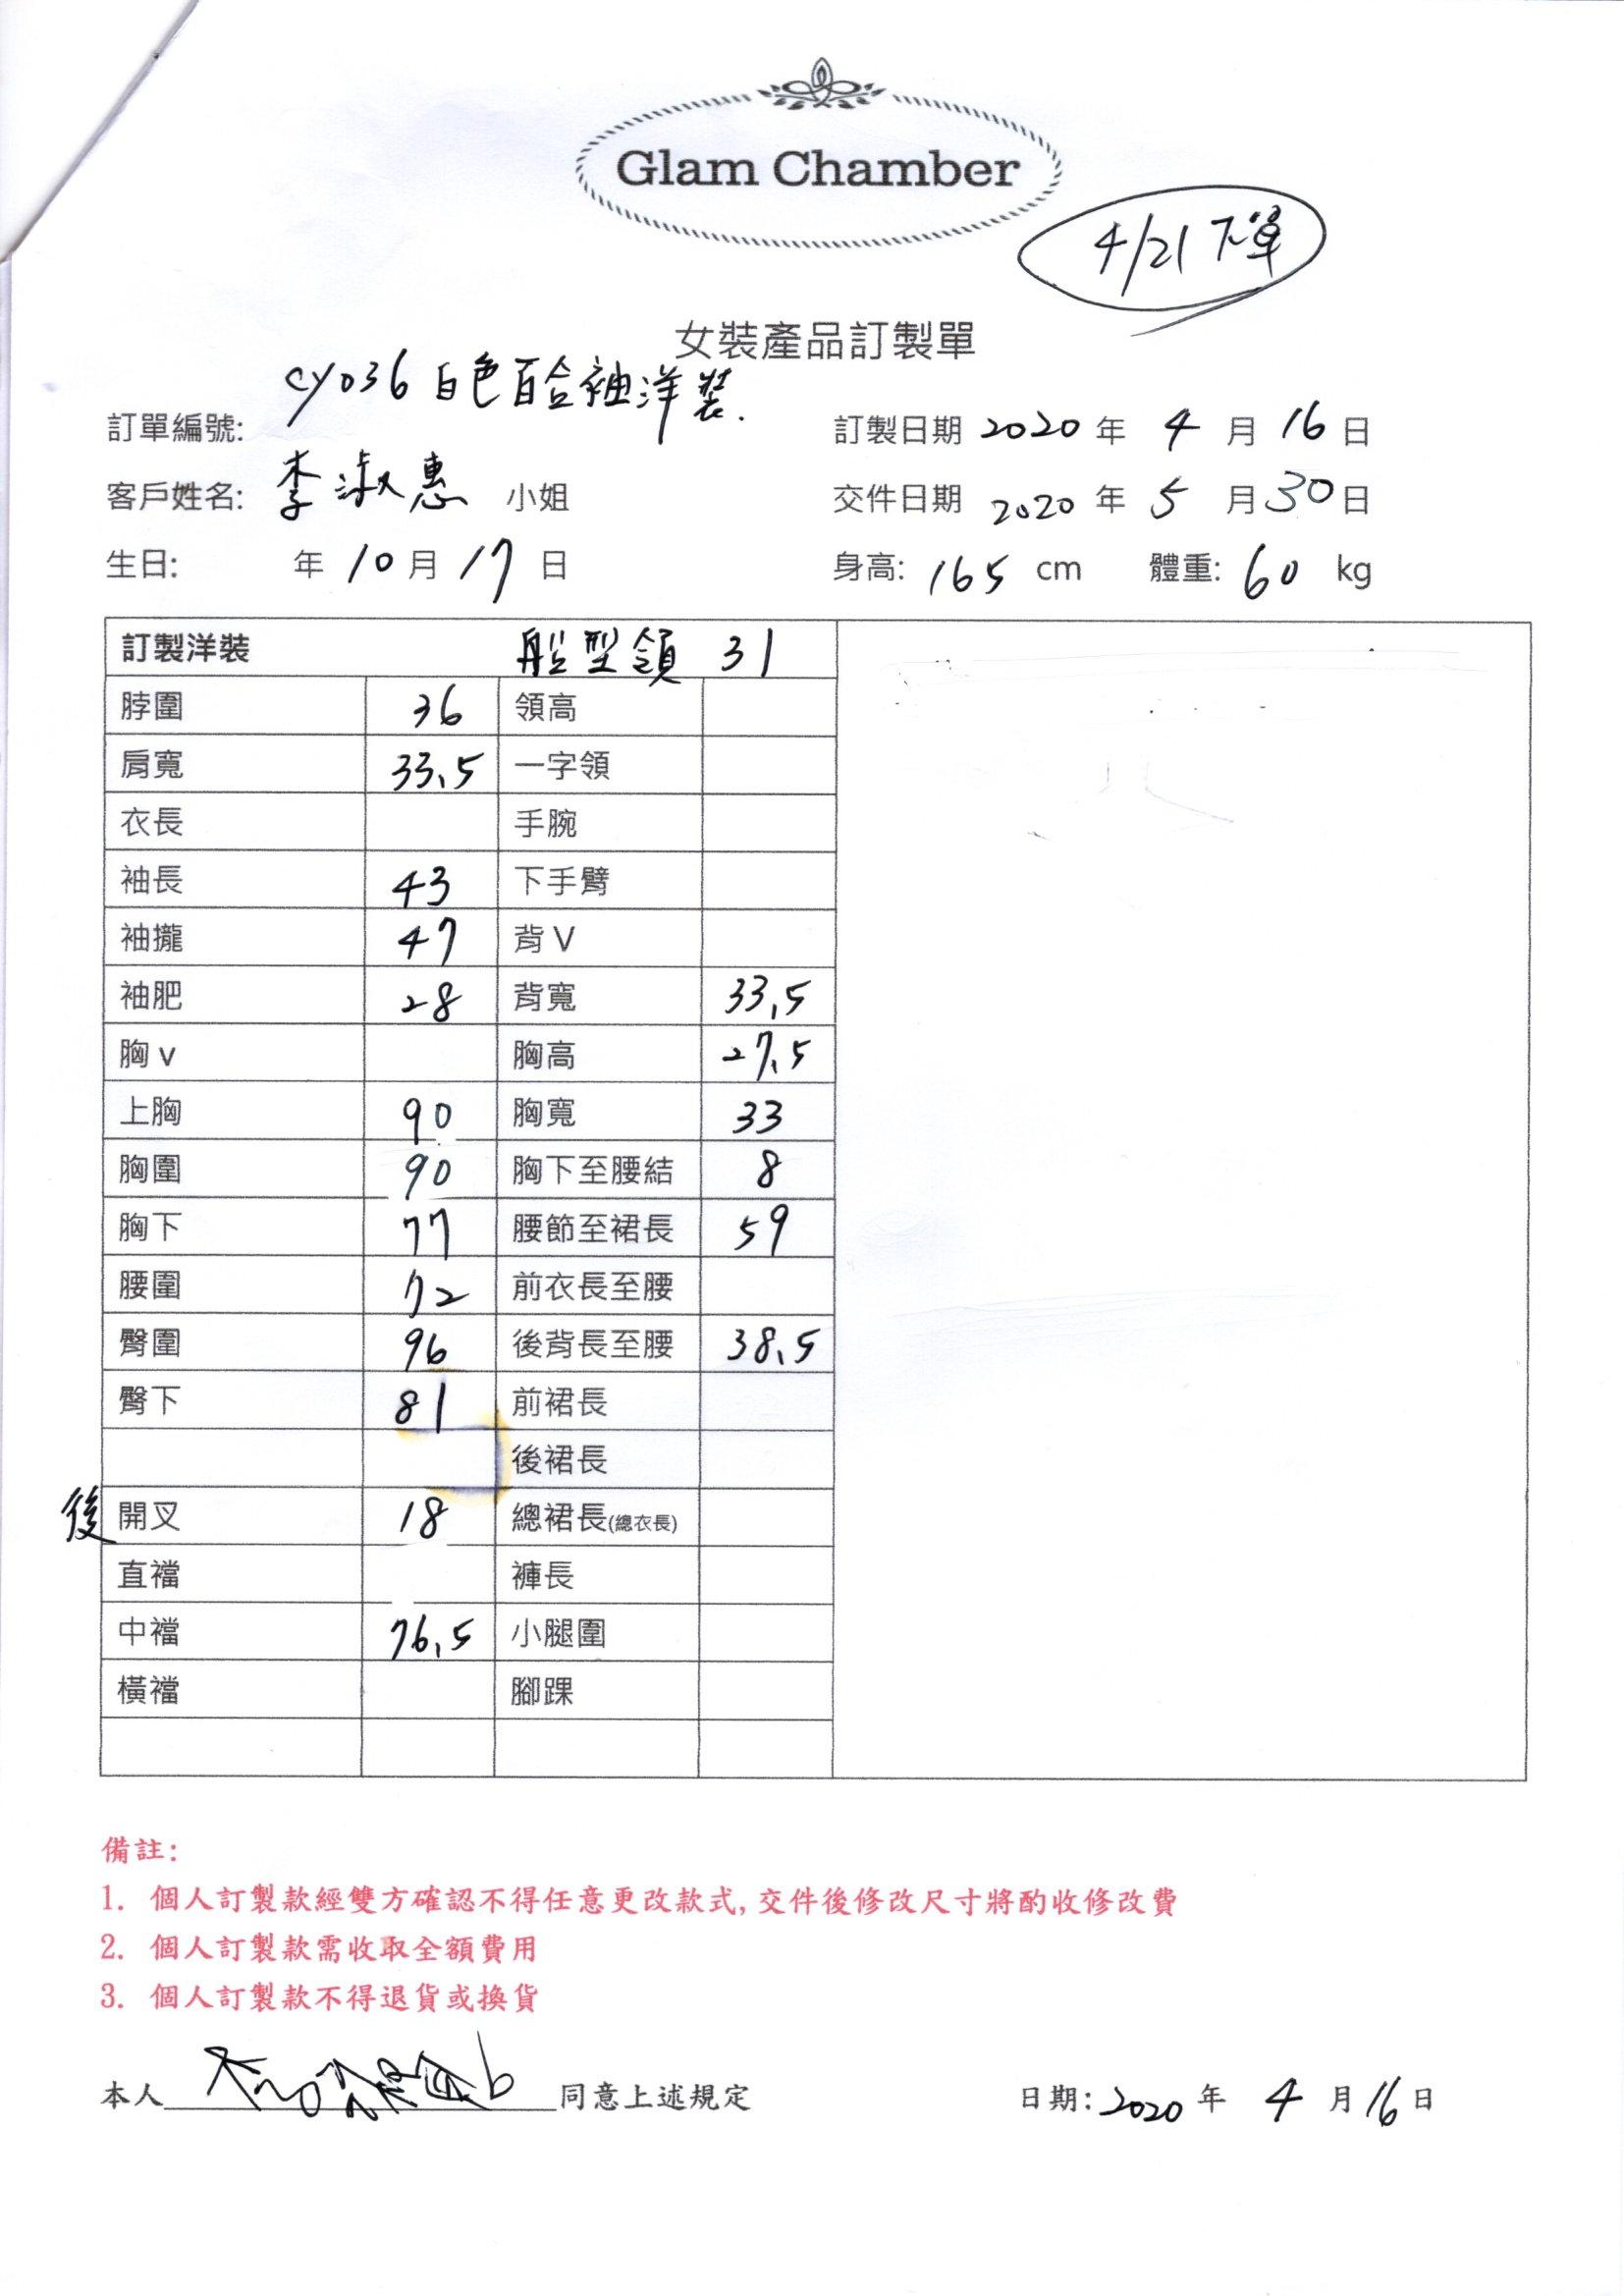 Glam Chamber
4/21 下單
女裝產品訂製單
cy036 白色百合袖洋裝.
訂單編號: 訂製日期 2020 年 4 月 16 日
客戶姓名: 李淑惠 小姐 交件日期 2020 年 5 月 30 日
生日: 年 10 月 17 日 身高: 165 cm 體重: 60 kg
訂製洋裝 船型領 31
脖圍 36 領高
肩寬 33.5 一字領
衣長 手腕
袖長 43 下手臂
袖攏 47 背 V
袖肥 28 背寬 33.5
胸 v 胸高 27.5
上胸 90 胸寬 33
胸圍 90 胸下至腰結 8
胸下 77 腰節至裙長 59
腰圍 72 前衣長至腰
臀圍 96 後背長至腰 38.5
臀下 81 前裙長
後裙長
後 開叉 18 總裙長(總衣長)
直襠 褲長
中襠 76.5 小腿圍
橫襠 腳踝
備註:
1. 個人訂製款經雙方確認不得任意更改款式, 交件後修改尺寸將酌收修改費
2. 個人訂製款需收取全額費用
3. 個人訂製款不得退貨或換貨
本人 同意上述規定 日期: 2020 年 4 月 16 日